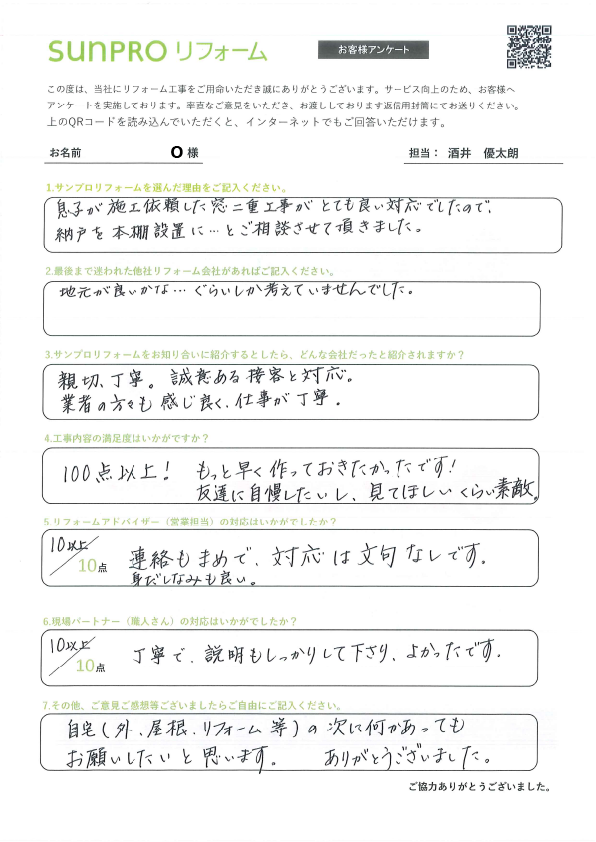 sunpro リフォーム
お客様アンケート
この度は、当社にリフォーム工事をご用命いただき誠にありがとうございます。サービス向上のため、お客様へ
アンケートを実施しております。率直なご意見をいただき、お渡ししております返信用封筒にてお送りください。
上のQRコードを読み込んでいただくと、インターネットでもご回答いただけます。
お名前 O 様 担当： 酒井 優太朗
1.サンプロリフォームを選んだ理由をご記入ください。
息子が施工依頼した窓二重工事がとても良い対応でしたので、
納戸を本棚設置に…とご相談させて頂きました。
2.最後まで迷われた他社リフォーム会社があればご記入ください。
地元が良いかな…ぐらいしか考えていませんでした。
3.サンプロリフォームをお知り合いに紹介するとしたら、どんな会社だったと紹介されますか？
親切、丁寧。誠意ある接客と対応。
業者の方々も感じ良く、仕事が丁寧。
4.工事内容の満足度はいかがですか？
100点以上！ もっと早く作っておきたかったです！
友達に自慢したいし、見てほしいくらい素敵。
5.リフォームアドバイザー（営業担当）の対応はいかがでしたか？
10以上／10点 連絡もまめで、対応は文句なしです。
身だしなみも良い。
6.現場パートナー（職人さん）の対応はいかがでしたか？
10以上／10点 丁寧で、説明もしっかりして下さり、よかったです。
7.その他、ご意見ご感想等ございましたらご自由にご記入ください。
自宅（外、屋根、リフォーム等）の次に何かあっても
お願いしたいと思います。 ありがとうございました。
ご協力ありがとうございました。